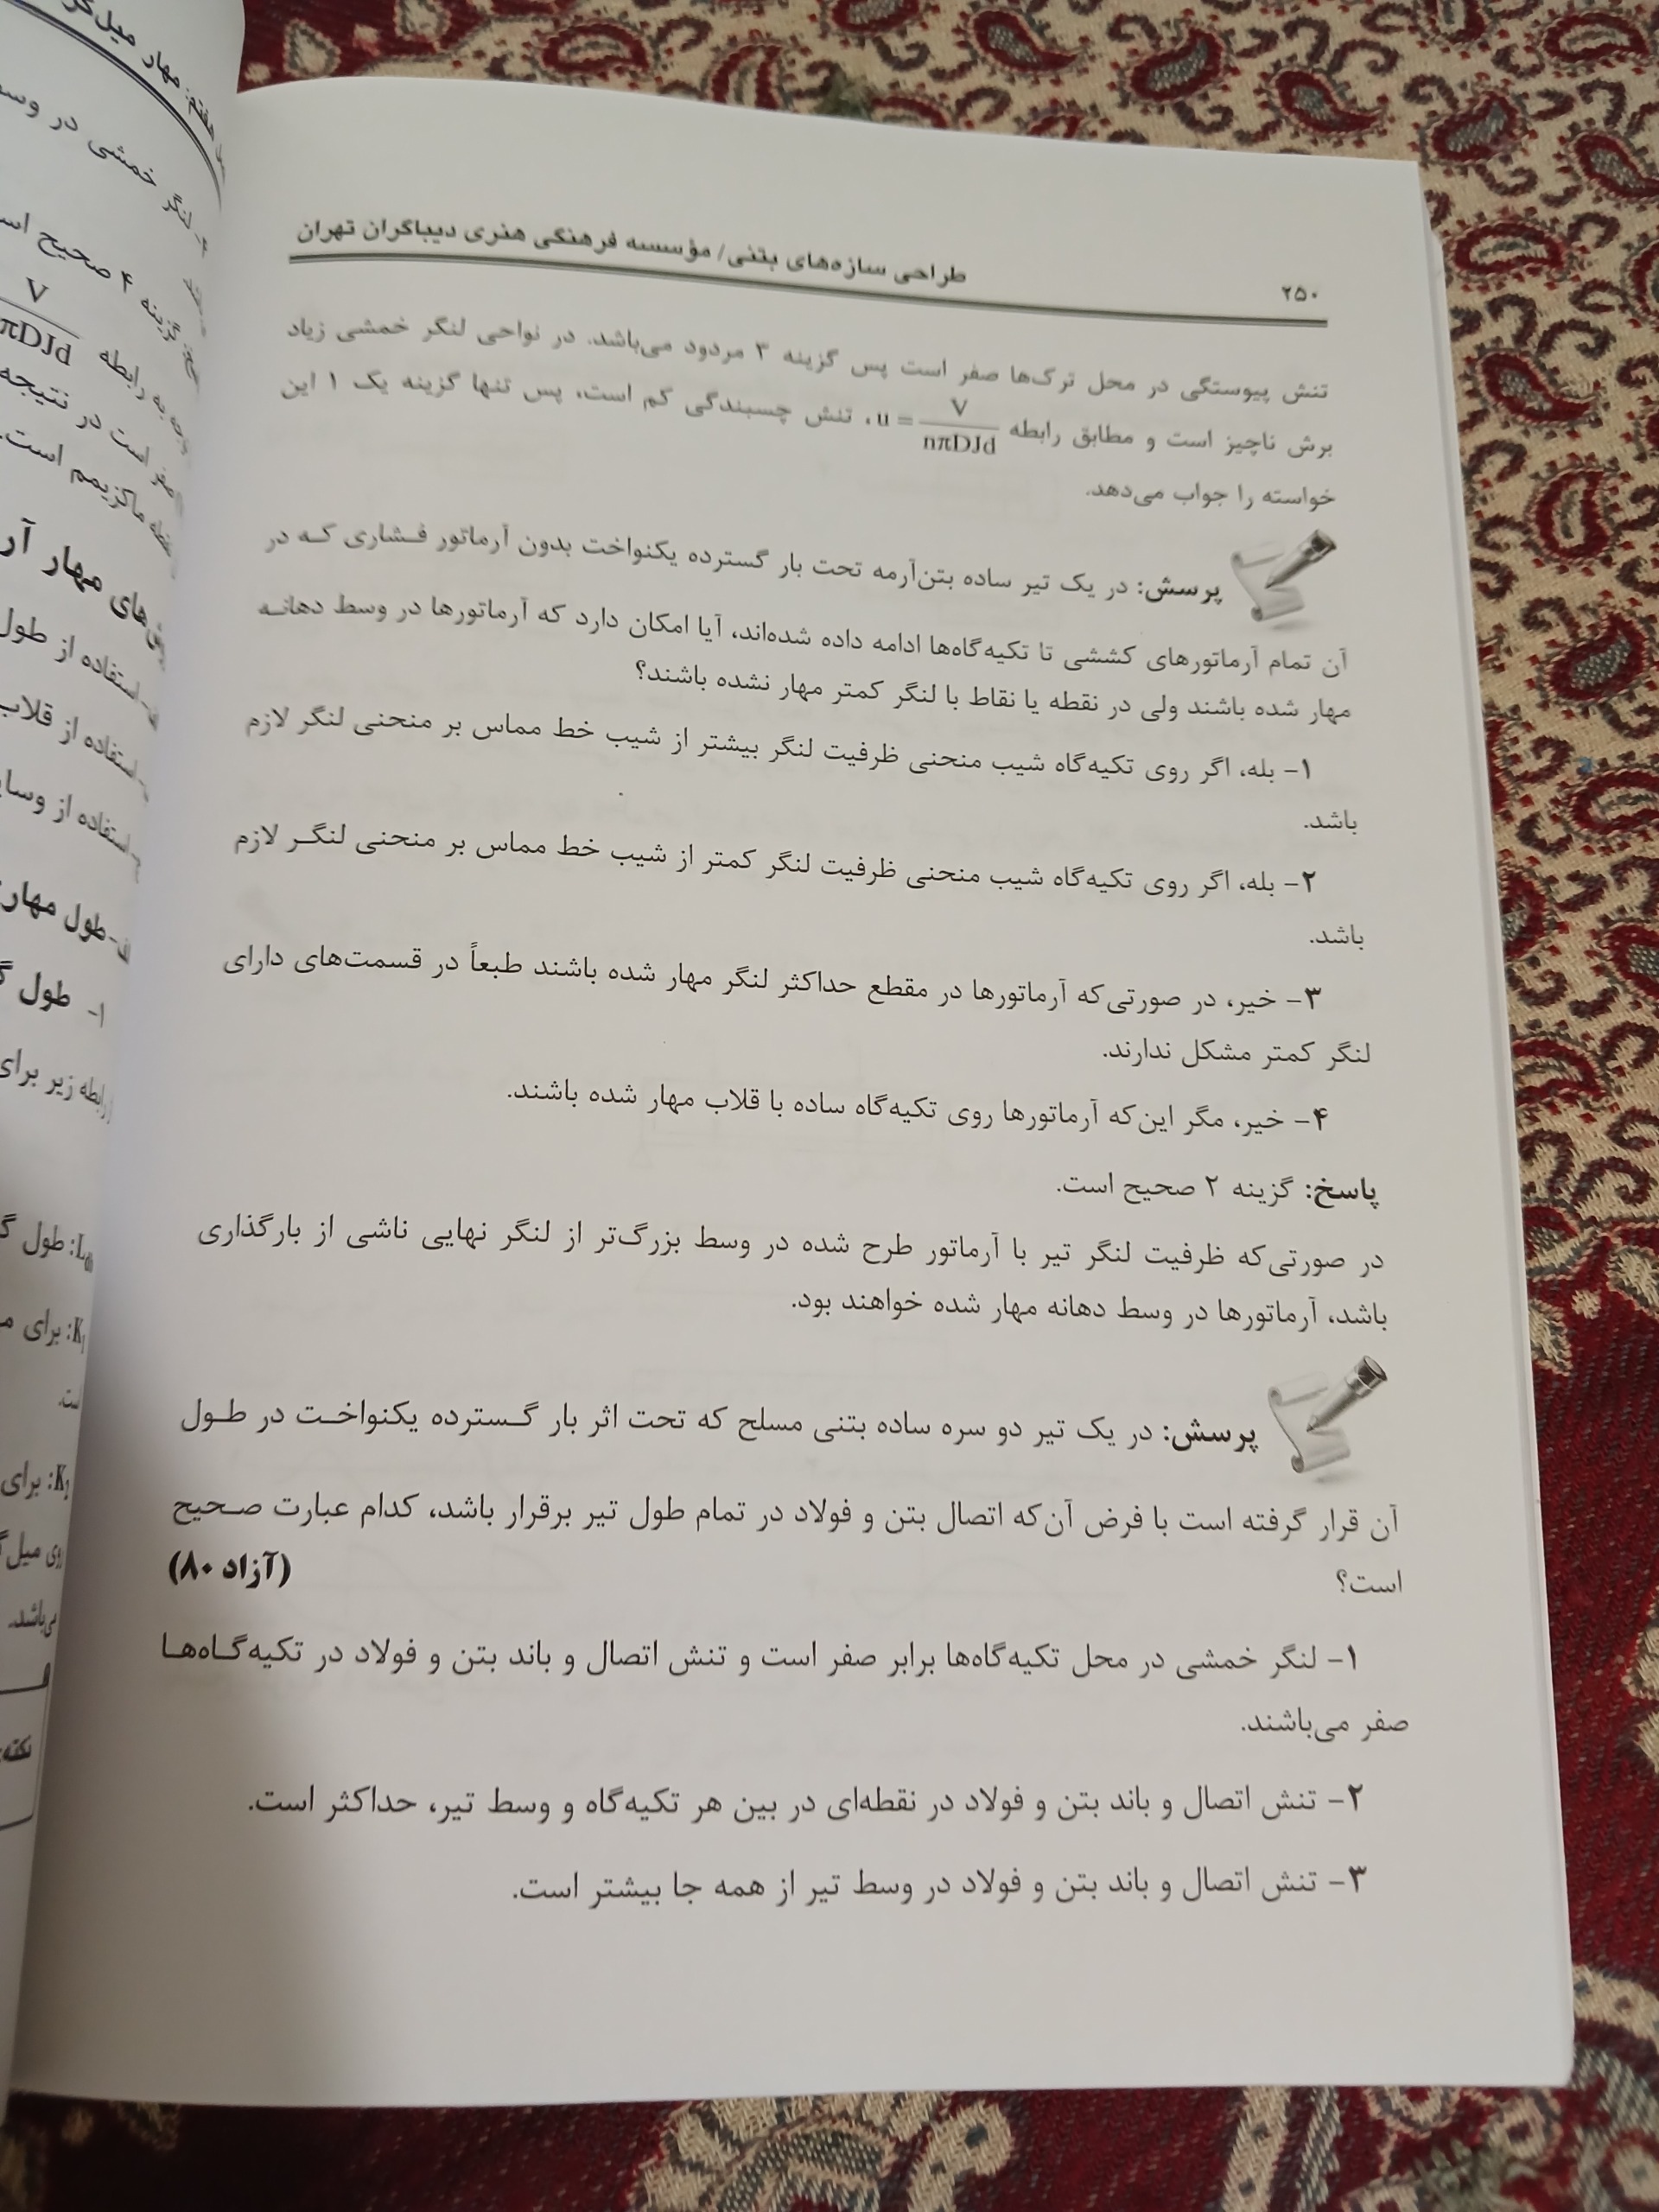 ۲۵۰
طراحی سازه‌های بتنی/ مؤسسه فرهنگی هنری دیباگران تهران
تنش پیوستگی در محل ترک‌ها صفر است پس گزینه ۳ مردود می‌باشد. در نواحی لنگر خمشی زیاد
برش ناچیز است و مطابق رابطه u = V / nπDJd، تنش چسبندگی کم است، پس تنها گزینه یک ۱ این
خواسته را جواب می‌دهد.
پرسش: در یک تیر ساده بتن‌آرمه تحت بار گسترده یکنواخت بدون آرماتور فشاری که در
آن تمام آرماتورهای کششی تا تکیه‌گاه‌ها ادامه داده شده‌اند، آیا امکان دارد که آرماتورها در وسط دهانه
مهار شده باشند ولی در نقطه یا نقاط با لنگر کمتر مهار نشده باشند؟
۱- بله، اگر روی تکیه‌گاه شیب منحنی ظرفیت لنگر بیشتر از شیب خط مماس بر منحنی لنگر لازم
باشد.
۲- بله، اگر روی تکیه‌گاه شیب منحنی ظرفیت لنگر کمتر از شیب خط مماس بر منحنی لنگر لازم
باشد.
۳- خیر، در صورتی‌که آرماتورها در مقطع حداکثر لنگر مهار شده باشند طبعاً در قسمت‌های دارای
لنگر کمتر مشکل ندارند.
۴- خیر، مگر این‌که آرماتورها روی تکیه‌گاه ساده با قلاب مهار شده باشند.
پاسخ: گزینه ۲ صحیح است.
در صورتی‌که ظرفیت لنگر تیر با آرماتور طرح شده در وسط بزرگ‌تر از لنگر نهایی ناشی از بارگذاری
باشد، آرماتورها در وسط دهانه مهار شده خواهند بود.
پرسش: در یک تیر دو سره ساده بتنی مسلح که تحت اثر بار گسترده یکنواخت در طول
آن قرار گرفته است با فرض آن‌که اتصال بتن و فولاد در تمام طول تیر برقرار باشد، کدام عبارت صحیح
است؟ (آزاد ۸۰)
۱- لنگر خمشی در محل تکیه‌گاه‌ها برابر صفر است و تنش اتصال و باند بتن و فولاد در تکیه‌گاه‌ها
صفر می‌باشند.
۲- تنش اتصال و باند بتن و فولاد در نقطه‌ای در بین هر تکیه‌گاه و وسط تیر، حداکثر است.
۳- تنش اتصال و باند بتن و فولاد در وسط تیر از همه جا بیشتر است.